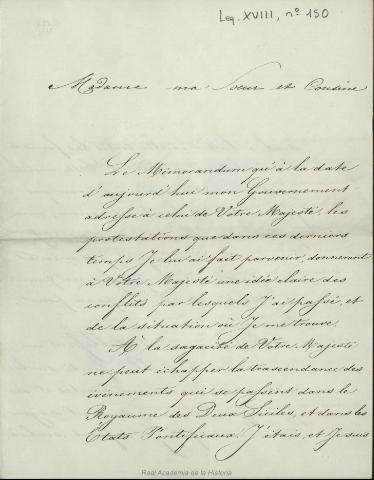 Leg. XVIII, nº 150
Madame ma Sœur et Cousine
Le Mémorandum qu'à la date
d'aujourd'hui mon Gouvernement
adresse à celui de Votre Majesté, les
protestations que dans ces derniers
temps Je lui ai fait parvenir, donneront
à Votre Majesté une idée claire des
conflits par lesquels J'ai passé, et
de la situation où Je me trouve.
A la sagacité de Votre Majesté
ne peut échapper la trascendance des
événements qui se passent dans le
Royaume des Deux Siciles, et dans les
États Pontificaux. J'étais, et Je suis
Real Academia de la Historia